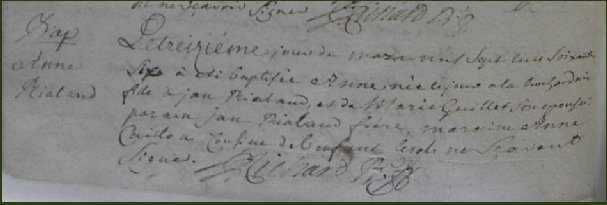 ne Scavoir Signer Richard Ptre
Bap
Anne
Rialand
Le treizième jour de mars mil Sept cens soixante
Six a été baptisée Anne née le jour a la
fille de jan Rialand, et de Marie Guillet Son epouse
parain jan Rialand frère, maraine Anne
Cousine de l'enfant lesds ne Scavent
Signer. Richard Ptre